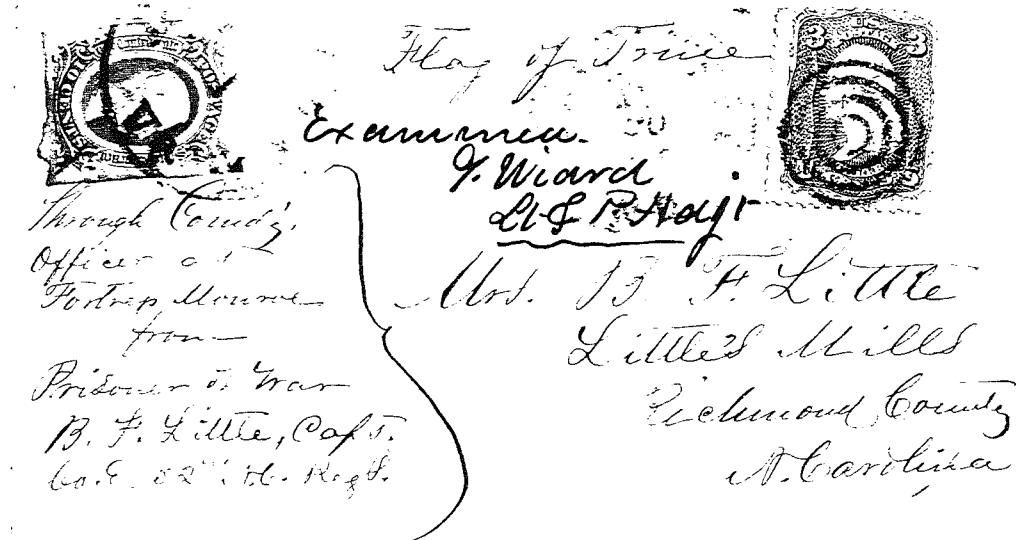 Flag of Truce
3
Examined.
J. Wiard
Lt & P. Adjt
Through Comdg.
Officer at
Fortress Monroe
from
Prisoner of War
B. F. Little, Capt.
Co. E. 52nd N.C. Regt.
Mrs. B. F. Little
Little's Mills
Richmond County
N. Carolina